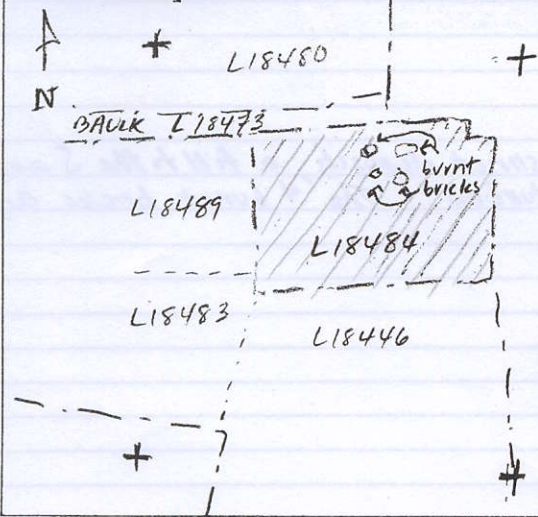 L18480
N
BAULK L18473
burnt
bricks
L18489
L18484
L18483
L18446